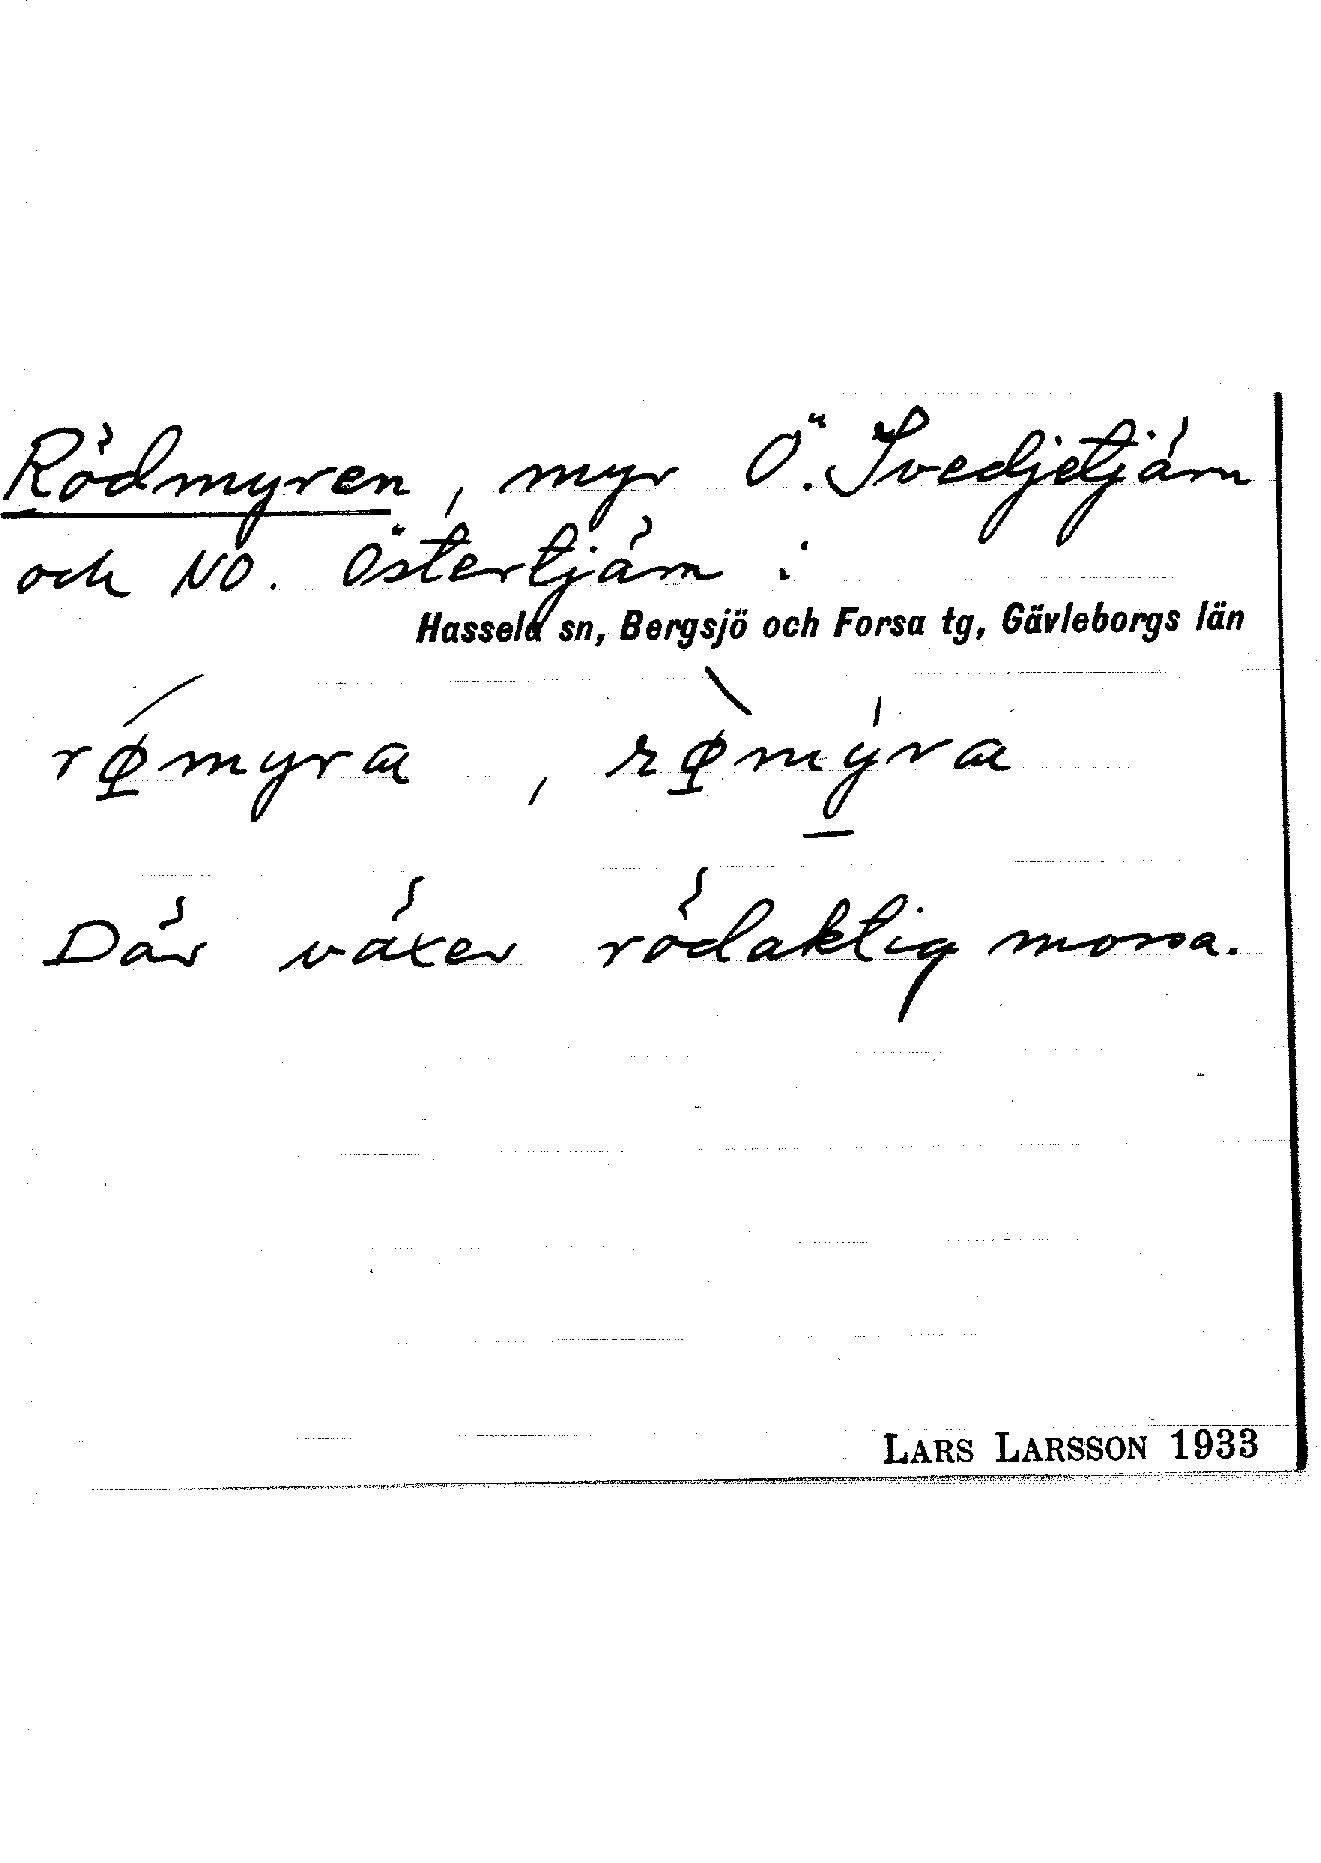 Rödmyren, myr Ö. Svedjetjärn
och NO. Östertjärn i
Hassela sn, Bergsjö och Forsa tg, Gävleborgs län
rǿ̲myra, rø̲̀mý̲ra
Där växer rödaktig mossa.
LARS LARSSON 1933